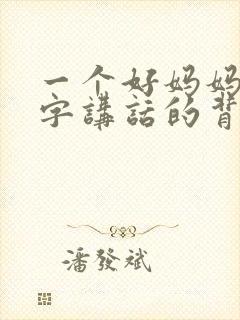 一个好妈妈
字講話的背
潘發斌